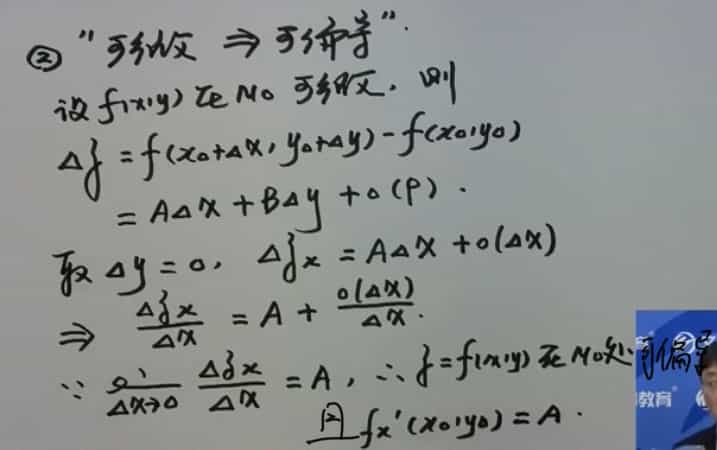 ② "可微 ⇒ 可偏导".
设 f(x,y) 在 M₀ 可微. 则
Δz = f(x₀+Δx, y₀+Δy) - f(x₀,y₀)
= AΔx + BΔy + o(ρ).
取 Δy = 0, Δzx = AΔx + o(Δx)
⇒ Δzx/Δx = A + o(Δx)/Δx.
∵ lim Δx→0 Δzx/Δx = A, ∴ z = f(x,y) 在 M₀处可偏导
且 fx'(x₀,y₀) = A.
教育